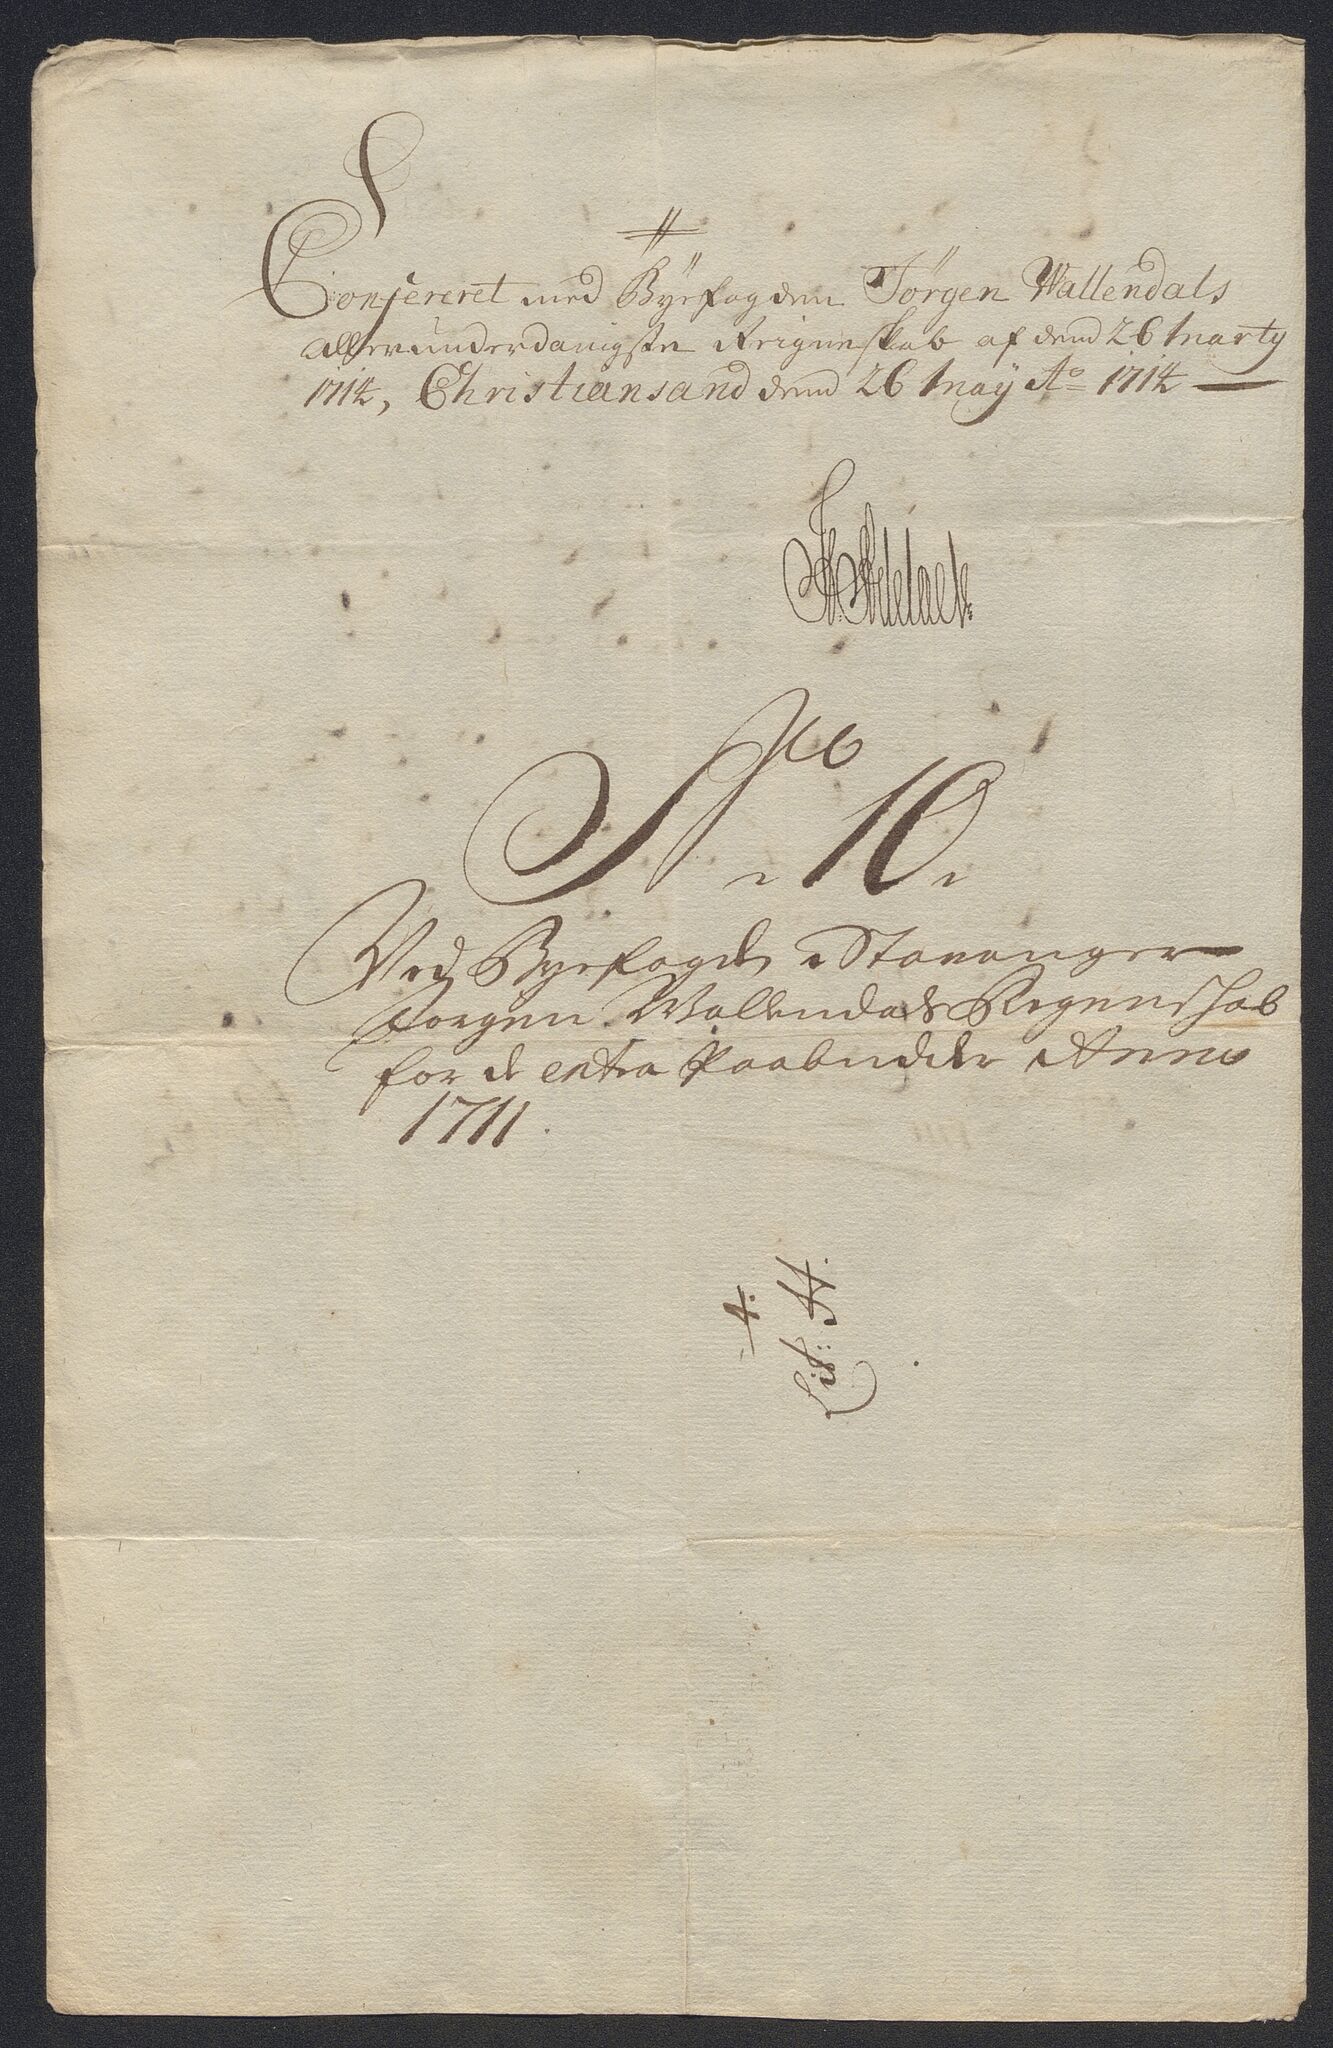 Confereret med Byefogden Jørgen Wallendals
allerunderdanigste Reigneskab af dend 26 Marty
1714, Christiansand dend 26 Maÿ Ao 1714
No 10
Ved Byefogdens Stavanger
Jørgen Wallendals Regenschab
for de extra Paabudder Anno
1711.
4.
Lit: H.